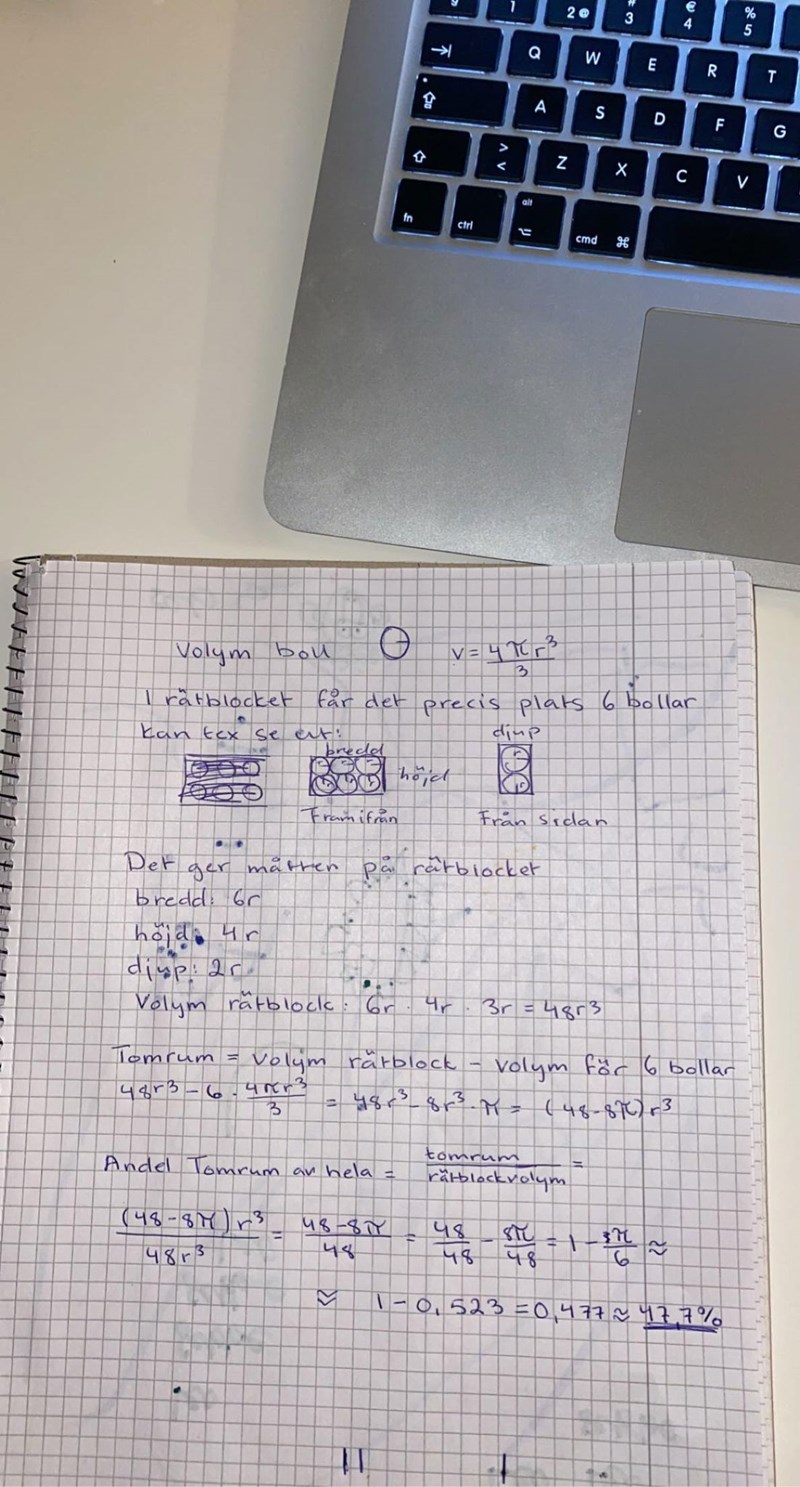 1
2 @
# 3
€ 4
% 5
Q W E R T
A S D F G
> < Z X C V
fn ctrl alt ⌥ cmd ⌘
Volym boll V = 4πr³/3
I rätblocket får det precis plats 6 bollar
kan tex se ut:
bredd
höjd
djup
Framifrån Från sidan
Det ger måtten på rätblocket
bredd: 6r
höjd: 4r
djup: 2r
Volym rätblock: 6r · 4r · 3r = 48r³
Tomrum = Volym rätblock - volym för 6 bollar
48r³ - 6 · 4πr³/3 = 48r³ - 8r³·π = (48-8π)r³
Andel Tomrum av hela = tomrum/rätblockvolym =
(48-8π)r³/48r³ = 48-8π/48 = 48/48 - 8π/48 = 1 - π/6 ≈
≈ 1 - 0,523 = 0,477 ≈ 47,7%